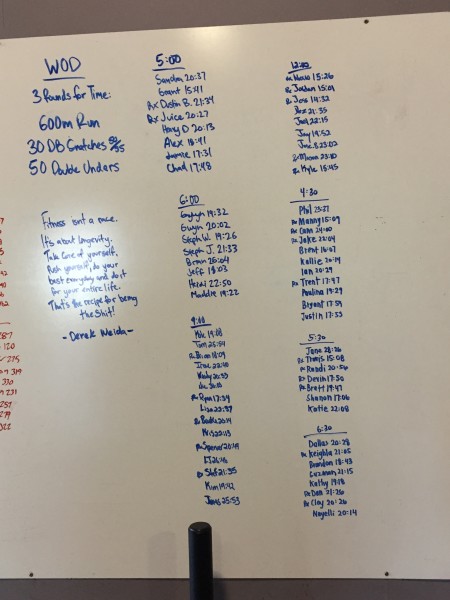 WOD
3 Rounds for Time:
600m Run
30 DB Snatches 50/35
50 Double Unders
Fitness isnt a race.
It's about longevity.
Take care of yourself,
Push yourself, do your
best everyday and do it
for your entire life.
That's the recipe for being
the shit!
- Derek Weida -
5:00
Sandra 20:37
Grant 15:41
Rx Dustin B. 21:34
Rx Juice 20:27
Harry D 20:13
Alex 18:41
Jaimie 17:31
Chad 17:48
6:00
19:32
Gwyn 20:02
Steph W. 19:26
Steph J. 21:33
Brian 26:04
Jeff 18:03
Heidi 22:50
Maddie 19:22
9:00
19:08
Tom 25:54
Rx Brian 18:09
22:40
Wendy 20:33
Rx Ryan 17:34
Lisa 22:57
Rx
Rx Spencer
Rx Stef 21:35
Kim 19:42
James 25:53
15:26
Rx Jordan 15:09
Rx Jose 14:32
21:35
22:15
Jay 19:52
23:02
23:10
Rx Kyle 15:45
4:30
Phil 23:27
Rx Manny 15:09
Rx Cann 24:00
Rx Jake 22:04
Brent 16:07
Kellie 20:14
Ian 20:29
Rx Trent 17:47
Paulina 19:29
Bryant 17:59
Justin 17:33
5:30
Jane 28:26
Rx Travis 15:08
Rx Randi 20:56
Rx Devin 17:50
Rx Brett 19:47
Shanon 17:06
Katie 22:08
6:30
Dallas 20:28
Rx Keighla 21:05
Brandon 18:43
Guzman 21:15
Kathy 19:18
Rx Dan 21:26
Rx Clay 20:26
Nayelli 20:14
287
120
235
319
330
231
257
279
322